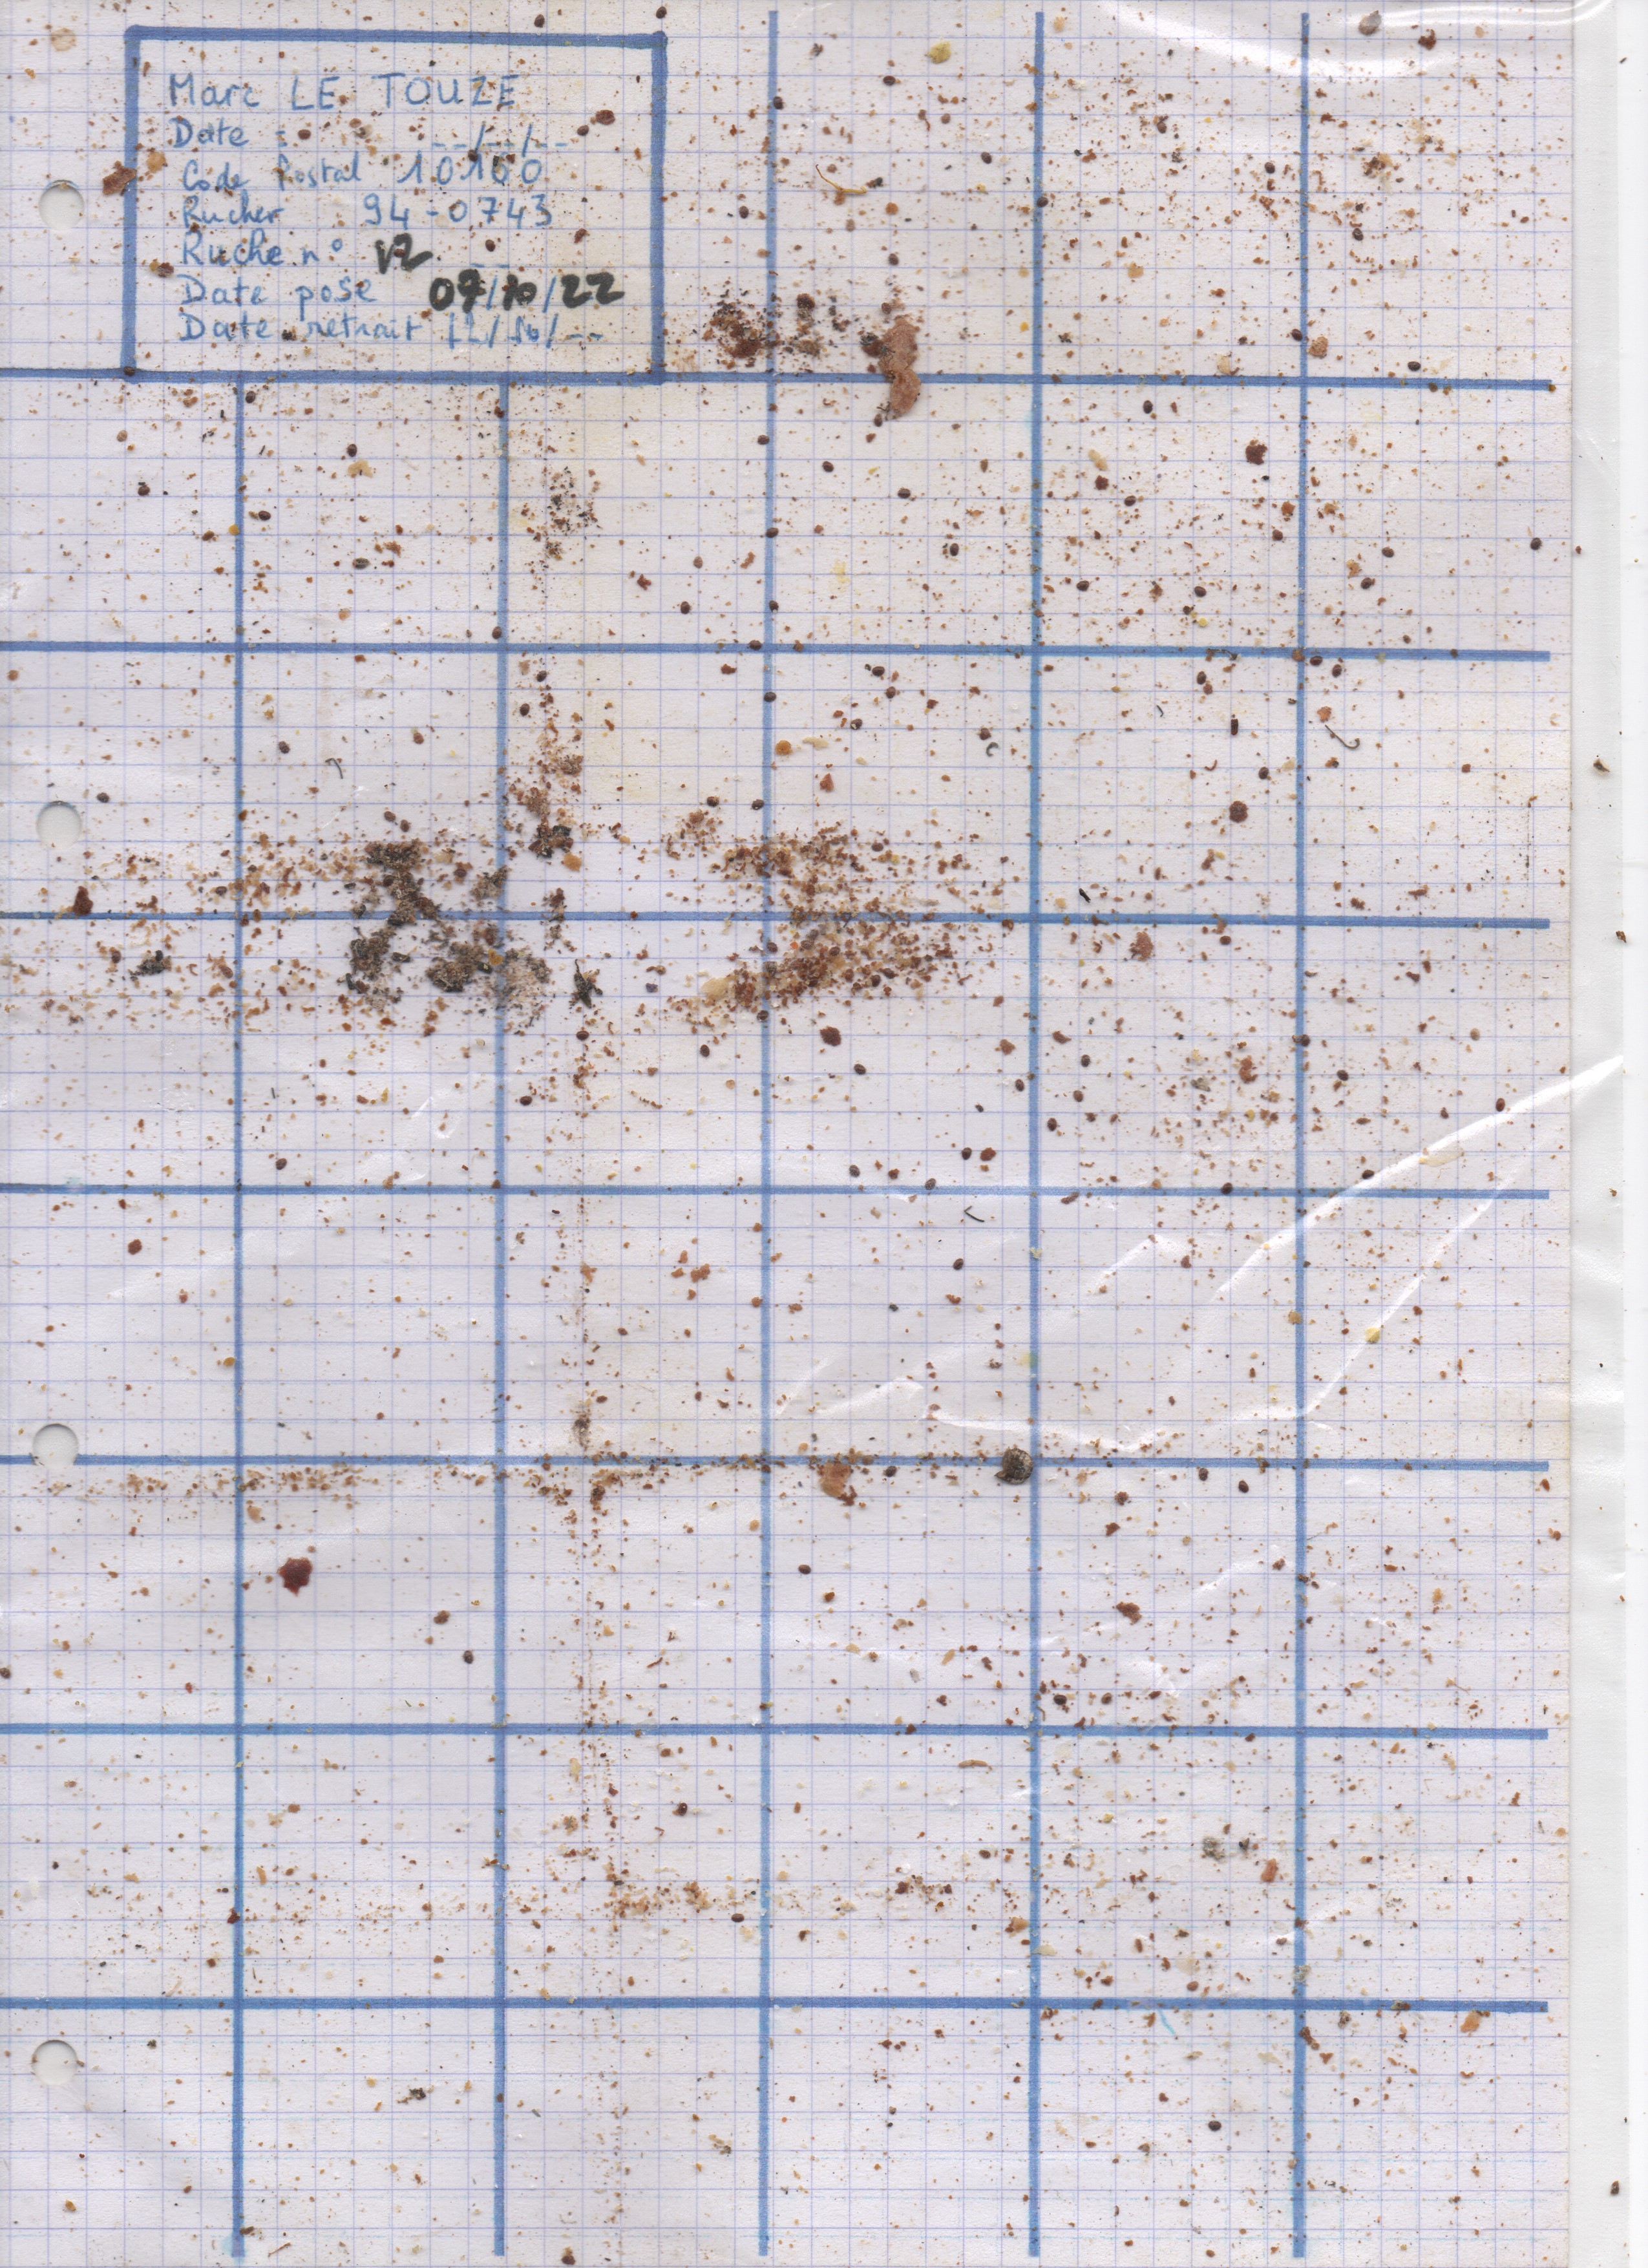 Marc LE TOUZE
Date : __/__/__
Code Postal 10100
Rucher 94-0743
Ruche n° V2
Date pose 07/10/22
Date retrait 12/10/__